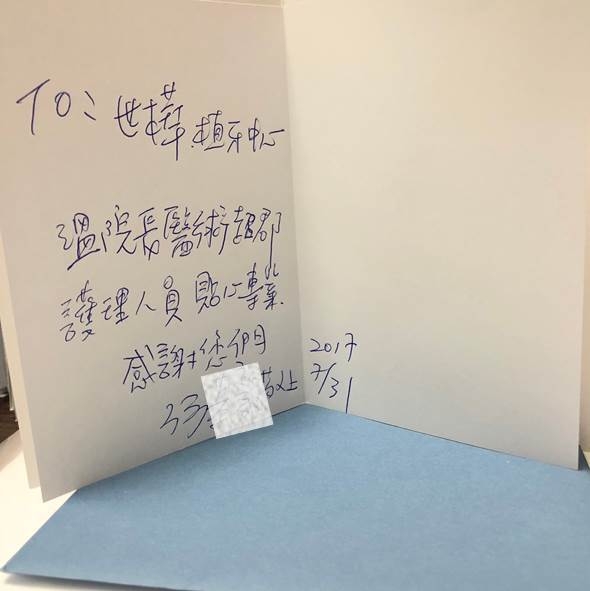 TO: 世樺植牙中心
溫院長醫術超群
護理人員 貼心專業
感謝您們 2017
敬上 7/31